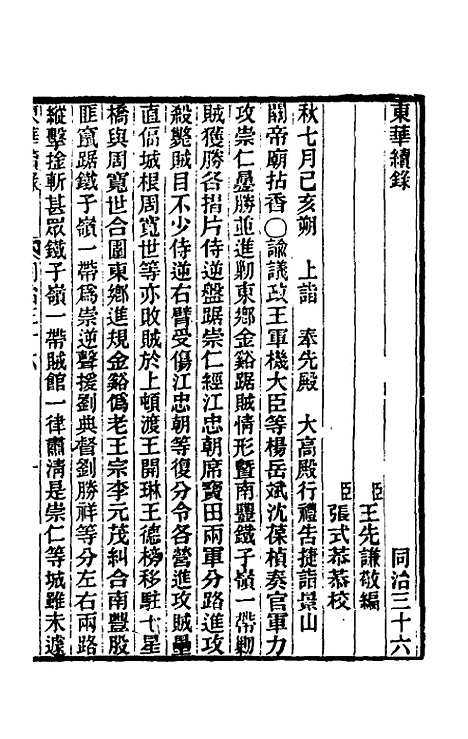 東華續錄　同治三十六
臣王先謙敬編
臣張式恭恭校
秋七月己亥朔　上詣　奉先殿　大高殿行禮告捷詣景山
關帝廟拈香○諭議政王軍機大臣等楊岳斌沈葆楨奏官軍力
攻崇仁疊勝並進勦東鄉金谿踞賊情形暨南豐鐵子嶺一帶勦
賊獲勝各摺片侍逆盤踞崇仁經江忠朝席寶田兩軍分路進攻
殺斃賊目不少侍逆右臂受傷江忠朝等復分令各營進攻賊壘
直偪城根周寬世等亦敗賊於上頓渡王開琳王德榜移駐七星
橋與周寬世合圍東鄉進規金谿僞老王宗李元茂糾合南豐股
匪竄踞鐵子嶺一帶爲崇逆聲援劉典督劉勝祥等分左右兩路
縱擊擒斬甚眾鐵子嶺一帶賊館一律肅清是崇仁等城雖未遽